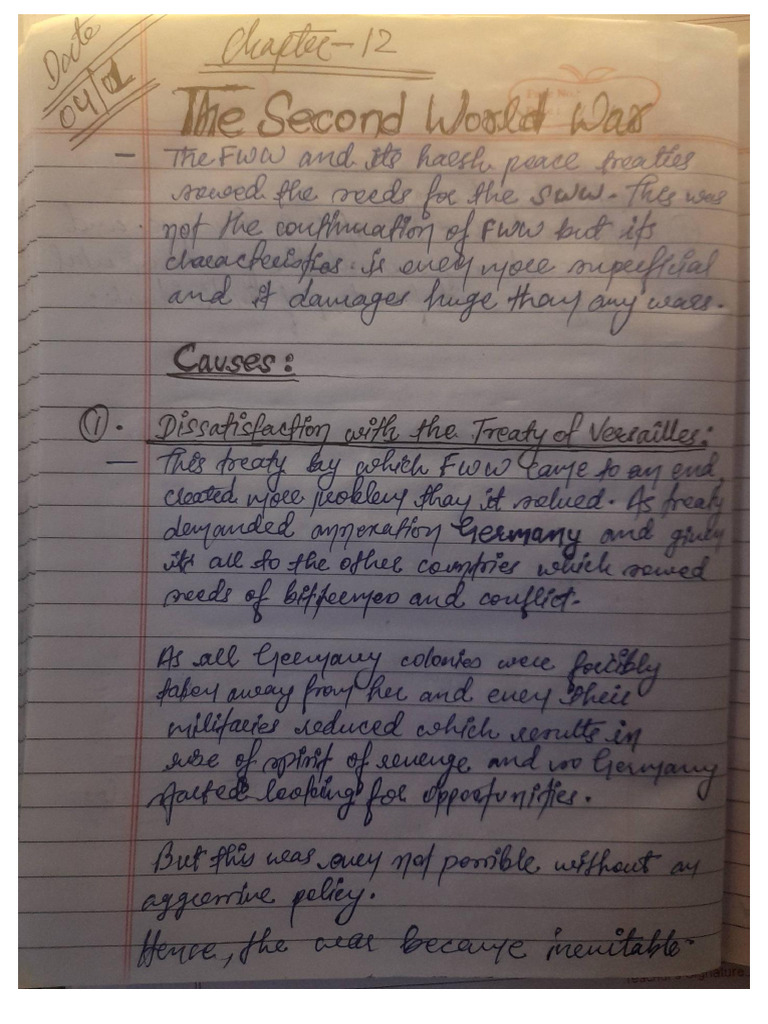 Date
04/01
Chapter-12
The Second World War
- The FWW and its harsh peace treaties
sowed the seeds for the SWW. This was
not the continuation of FWW but its
characteristics is even more superficial
and it damages huge than any wars.
Causes:
①. Dissatisfaction with the Treaty of Versailles:
- This treaty by which FWW came to an end,
created more problem than it solved. As treaty
demanded annexation Germany and given
its all to the other countries which sowed
seeds of and conflict.
As all Germany colonies were forcibly
taken away from her and even their
militaries reduced which results in
rise of spirit of revenge and so Germany
started looking for opportunities.
But this was even not possible without an
aggressive policy.
Hence, the war became inevitable.
Teacher's Signature